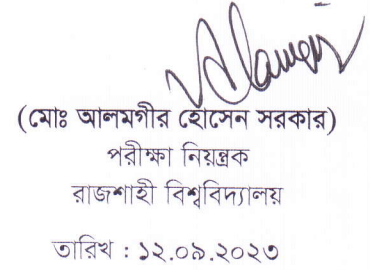 (মোঃ আলমগীর হোসেন সরকার)
পরীক্ষা নিয়ন্ত্রক
রাজশাহী বিশ্ববিদ্যালয়
তারিখ : ১২.০৯.২০২৩